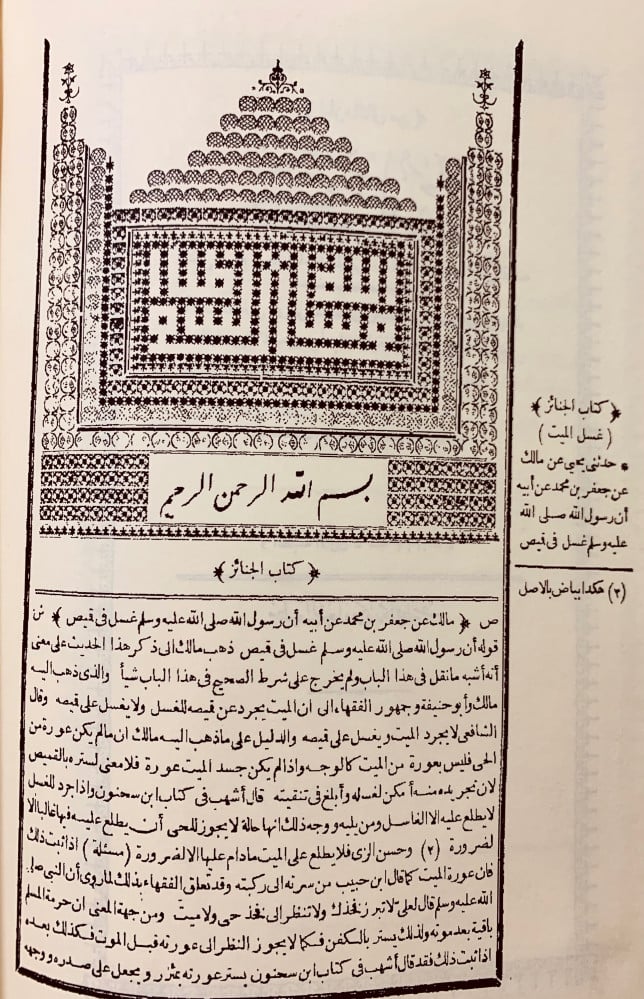 بسم الله الرحمن الرحيم
﴿ كتاب الجنائز ﴾
ص ﴿ مالك عن جعفر بن محمد عن أبيه أن رسول الله صلى الله عليه وسلم غسل فى قميص ﴾ ش
قوله أن رسول الله صلى الله عليه وسلم غسل فى قميص ذهب مالك الى ذكر هذا الحديث على معنى
أنه أشبه مانقل فى هذا الباب ولم يخرج على شرط الصحيح فى هذا الباب شيأ والذى ذهب اليه
مالك وأبو حنيفة وجمهور الفقهاء الى أن الميت يجرد عن قميصه للغسل ولا يغسل على قميصه وقال
الشافعى لا يجرد الميت ويغسل على قميصه والدليل على ماذهب اليه مالك ان مالم يكن عورة من
الحى فليس بعورة من الميت كالوجه واذا لم يكن جسد الميت عورة فلا معنى لستره بالقميص
لان تجريده منه أمكن لغسله وأبلغ فى تنقيته قال أشهب فى كتاب ابن سحنون واذا جرد للغسل
لا يطلع عليه الا الغاسل ومن يليه ووجه ذلك انها حالة لا يجوز للحى أن يطلع عليه فيها غالبا الا
لضرورة (٢) وحسن الزى فلا يطلع على الميت مادام عليها الا لضرورة (مسئلة) اذا ثبت ذلك
فان عورة الميت كما قال ابن حبيب من سرته الى ركبته وقد تعلق الفقهاء بذلك لما روى أن النبى صلى
الله عليه وسلم قال لعلى لا تبرز فخذك ولا تنظر الى فخذ حى ولا ميت ومن جهة المعنى ان حرمة المسلم
باقية بعد موته ولذلك يستر بالكفن فكما لا يجوز النظر الى عورته قبل الموت فكذلك بعده
اذا ثبت ذلك فقد قال أشهب فى كتاب ابن سحنون يستر عورته بمئزر ويجعل على صدره ووجهه
﴿ كتاب الجنائز ﴾
( غسل الميت )
* حدثنى يحيى عن مالك
عن جعفر بن محمد عن أبيه
أن رسول الله صلى الله
عليه وسلم غسل فى قميص
(٢) هكذا بياض بالاصل